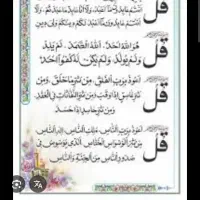 قل
انتم عابدون ما اعبد ولا انا عابد ما عبدتم ولا
انتم عابدون ما اعبد لكم دينكم ولي دين
قل هو الله احد الله الصمد لم يلد
ولم يولد ولم يكن له كفوا احد
قل اعوذ برب الفلق من شر ما خلق ومن
شر غاسق اذا وقب ومن شر النفاثات في العقد
ومن شر حاسد اذا حسد
قل اعوذ برب الناس ملك الناس اله الناس
من شر الوسواس الخناس الذي يوسوس في
صدور الناس من الجنة والناس